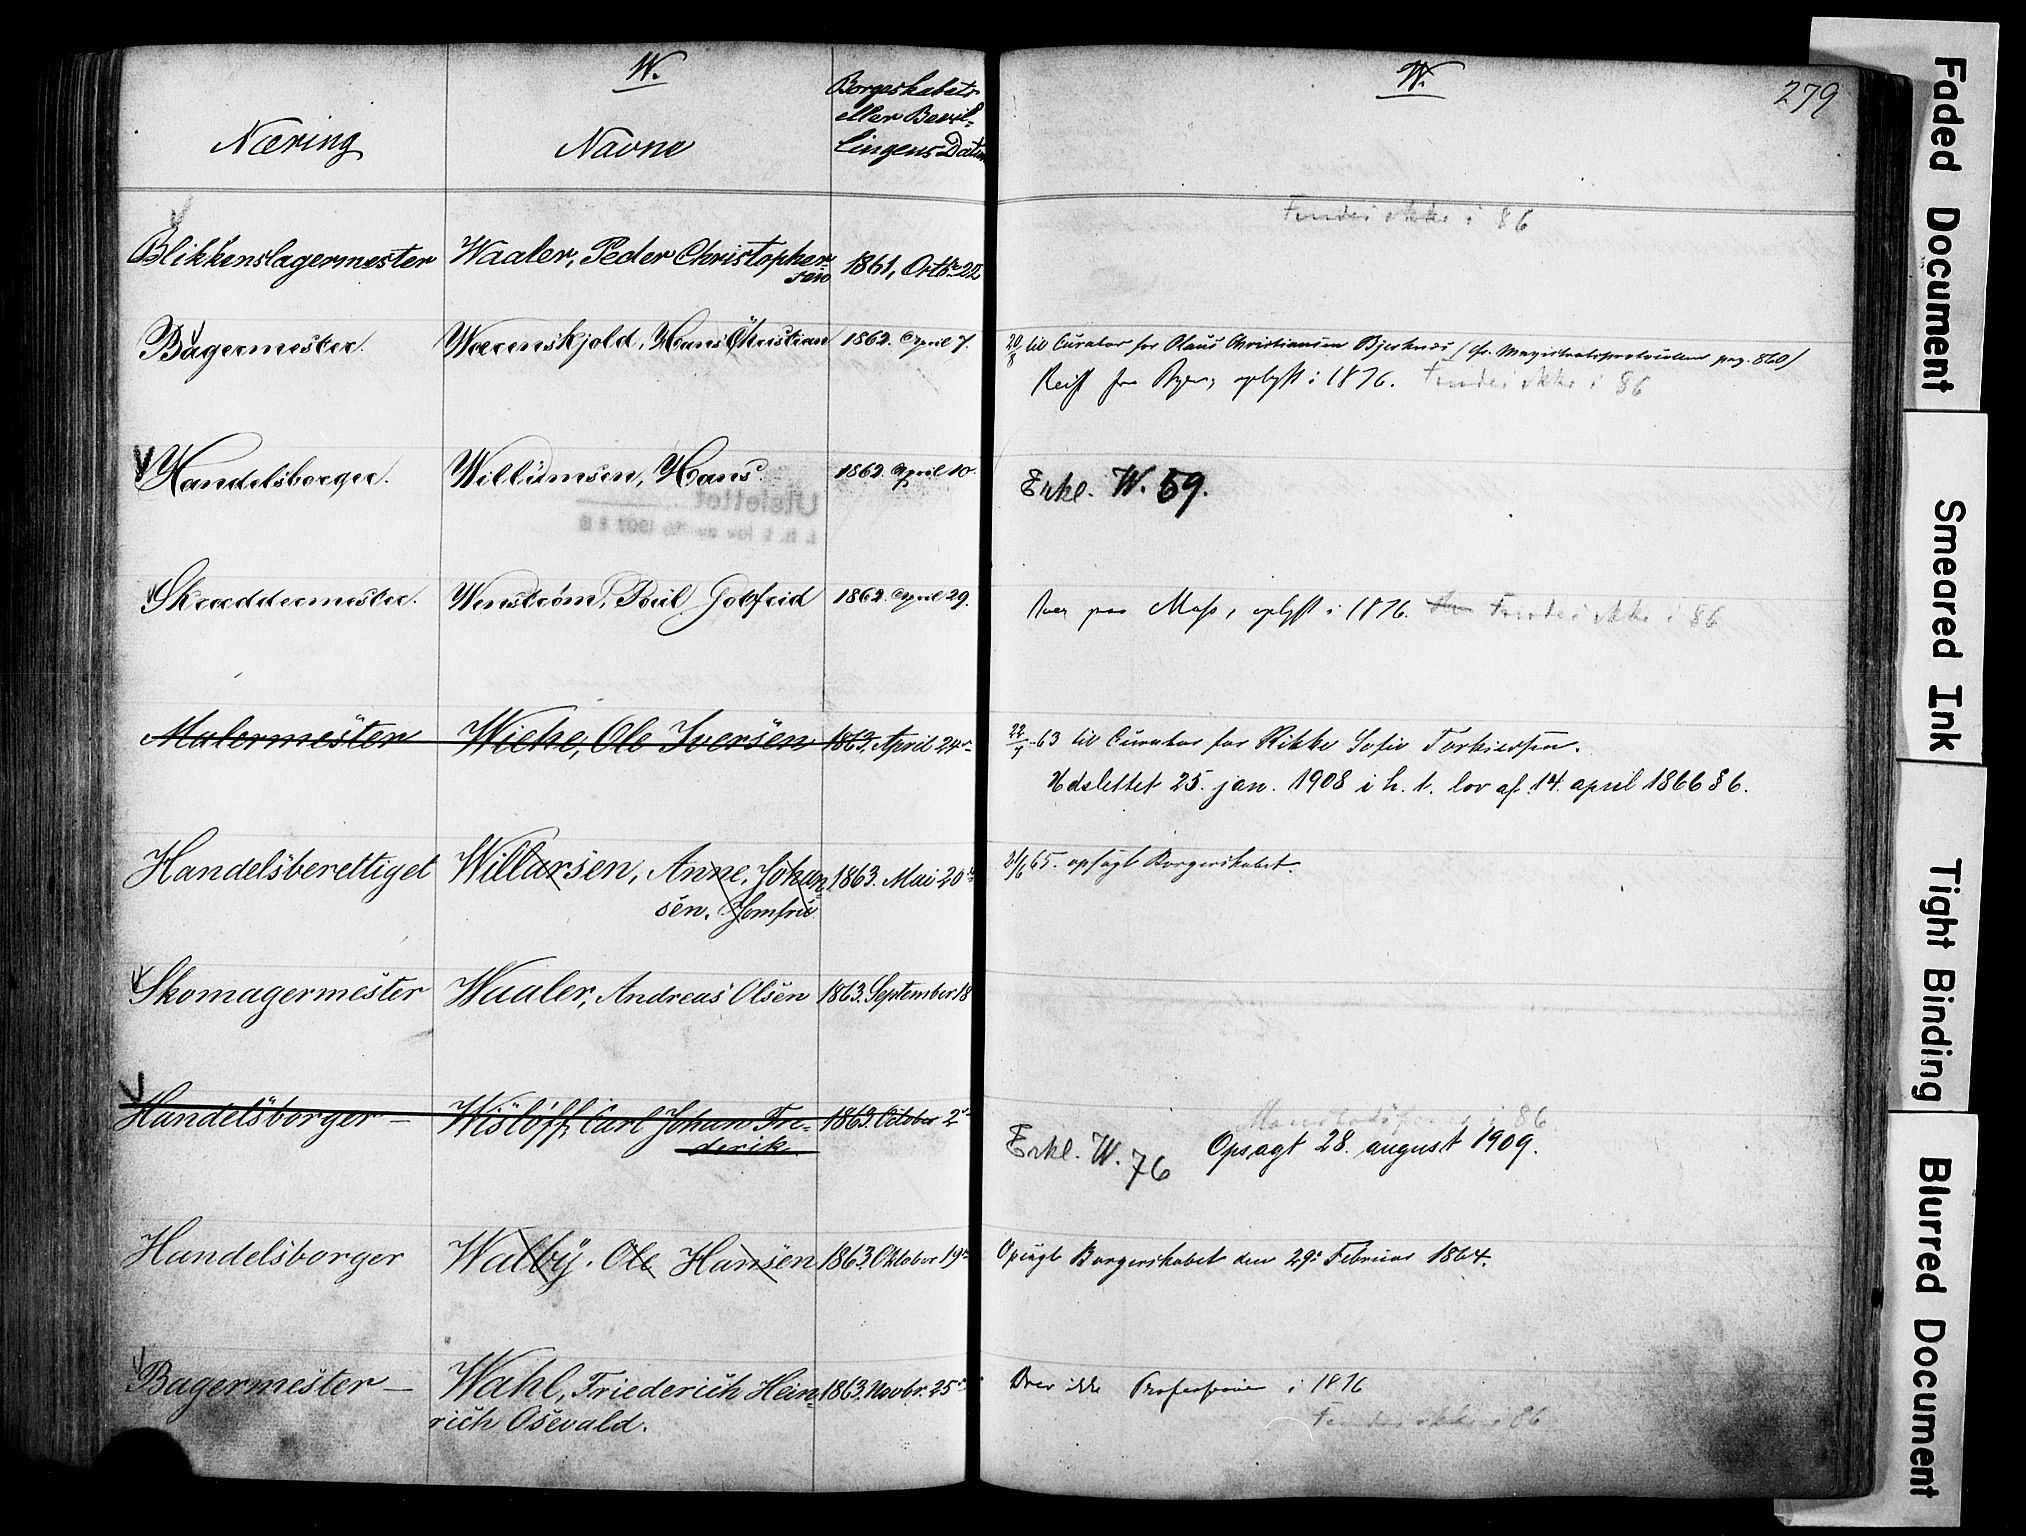 W.
Næring
Navne
Borgeskabets
eller Bevil-
lingens Datum
Blikkenslagermester Waaler, Peder Christopher-
sen 1861, Octbr 22
Bagermester. Wærenskjold, Hans Christian 1862. April 7.
Handelsborger. Willumsen, Hans. 1862. April 10.
Utslettet
Skræddermester. Wenstrøm, Poul Gotfrid 1862. April 29.
Malermester Wiehe, Ole Iversen 1863. April 24de
Handelsberettiget Willarsen, Anne, Johan-
sen. Jomfru 1863. Mai 20de
Skomagermester Waaler, Andreas Olsen 1863. September 18
Handelsborger — Wisløff, Carl Johan Fri-
derik. 1863. October 2de
Handelsborger Walby. Ole Hansen 1863. Oktober 19de
Bagermester — Wahl, Friederich Hein-
rich Osevald. 1863. Novbr. 25de
W.
279
Findes ikke i 86
20/8 til Curator for Olaus Christiansen Bjerknes (cfr. Magistratsprotocollen pag. 860)
Reist fra Byen, oplyst i 1876. Findes ikke i 86
Erkl. W. 59.
Boer paa Moss, oplyst i 1876. Findes ikke i 86
63 til Curator for Rikke Sofie
Udslettet 25. jan. 1908 i h. t. lov af 14. april 1866 § 6.
21/6 65. opsagt Borgerskabet.
86
Erkl. W. 76 Opsagt 28. august 1909.
Opsagt Borgerskabet den 29de Februar 1864.
Drev ikke Professionen i 1876
Findes ikke i 86
Faded Document
Smeared Ink
Tight Binding
Blurred Document